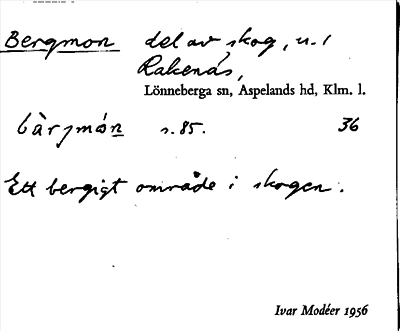 Bergmon del av skog, u. 1
Rakenäs,
Lönneberga sn, Aspelands hd, Klm. l.
bàrjmón s. 85. 36
Ett bergigt område i skogen.
Ivar Modéer 1956